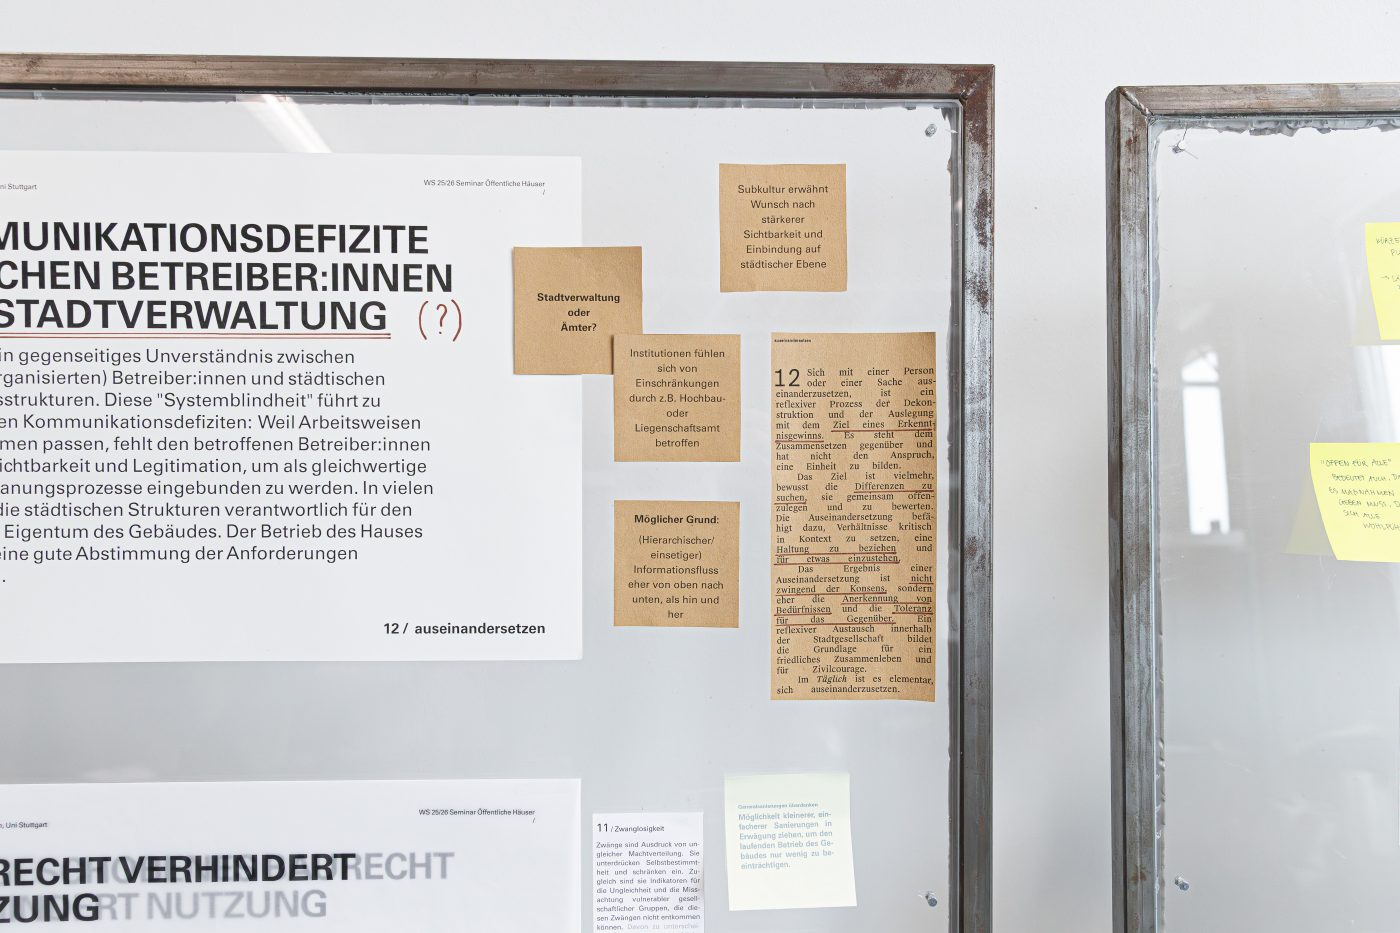 ni Stuttgart
WS 25/26 Seminar Öffentliche Häuser
/
MUNIKATIONSDEFIZITE
CHEN BETREIBER:INNEN
STADTVERWALTUNG (?)
in gegenseitiges Unverständnis zwischen
rganisierten) Betreiber:innen und städtischen
sstrukturen. Diese "Systemblindheit" führt zu
en Kommunikationsdefiziten: Weil Arbeitsweisen
men passen, fehlt den betroffenen Betreiber:innen
ichtbarkeit und Legitimation, um als gleichwertige
anungsprozesse eingebunden zu werden. In vielen
die städtischen Strukturen verantwortlich für den
Eigentum des Gebäudes. Der Betrieb des Hauses
eine gute Abstimmung der Anforderungen
.
12 / auseinandersetzen
Stadtverwaltung
oder
Ämter?
Subkultur erwähnt
Wunsch nach
stärkerer
Sichtbarkeit und
Einbindung auf
städtischer Ebene
Institutionen fühlen
sich von
Einschränkungen
durch z.B. Hochbau-
oder
Liegenschaftsamt
betroffen
Möglicher Grund:
(Hierarchischer/
einsetiger)
Informationsfluss
eher von oben nach
unten, als hin und
her
auseinandersetzen
12 Sich mit einer Person
oder einer Sache aus-
einanderzusetzen, ist ein
reflexiver Prozess der Dekon-
struktion und der Auslegung
mit dem Ziel eines Erkennt-
nisgewinns. Es steht dem
Zusammensetzen gegenüber und
hat nicht den Anspruch,
eine Einheit zu bilden.
Das Ziel ist vielmehr,
bewusst die Differenzen zu
suchen, sie gemeinsam offen-
zulegen und zu bewerten.
Die Auseinandersetzung befä-
higt dazu, Verhältnisse kritisch
in Kontext zu setzen, eine
Haltung zu beziehen und
für etwas einzustehen.
Das Ergebnis einer
Auseinandersetzung ist nicht
zwingend der Konsens, sondern
eher die Anerkennung von
Bedürfnissen und die Toleranz
für das Gegenüber. Ein
reflexiver Austausch innerhalb
der Stadtgesellschaft bildet
die Grundlage für ein
friedliches Zusammenleben und
für Zivilcourage.
Im Täglich ist es elementar,
sich auseinanderzusetzen.
, Uni Stuttgart
WS 25/26 Seminar Öffentliche Häuser
/
RECHT VERHINDERT
ZUNG
RECHT
RT NUTZUNG
11 / Zwanglosigkeit
Zwänge sind Ausdruck von un-
gleicher Machtverteilung. Sie
unterdrücken Selbstbestimmt-
heit und schränken ein. Zu-
gleich sind sie Indikatoren für
die Ungleichheit und die Miss-
achtung vulnerabler gesell-
schaftlicher Gruppen, die die-
sen Zwängen nicht entkommen
können. Davon zu unterschei-
Generalsanierungen überdenken
Möglichkeit kleinerer, ein-
facherer Sanierungen in
Erwägung ziehen, um den
laufenden Betrieb des Ge-
bäudes nur wenig zu be-
einträchtigen.
"OFFEN FÜR ALLE"
BEDEUTET AUCH, DA
ES MAßNAHMEN
GEBEN MUSS, D
SICH ALLE
WOHLFÜH